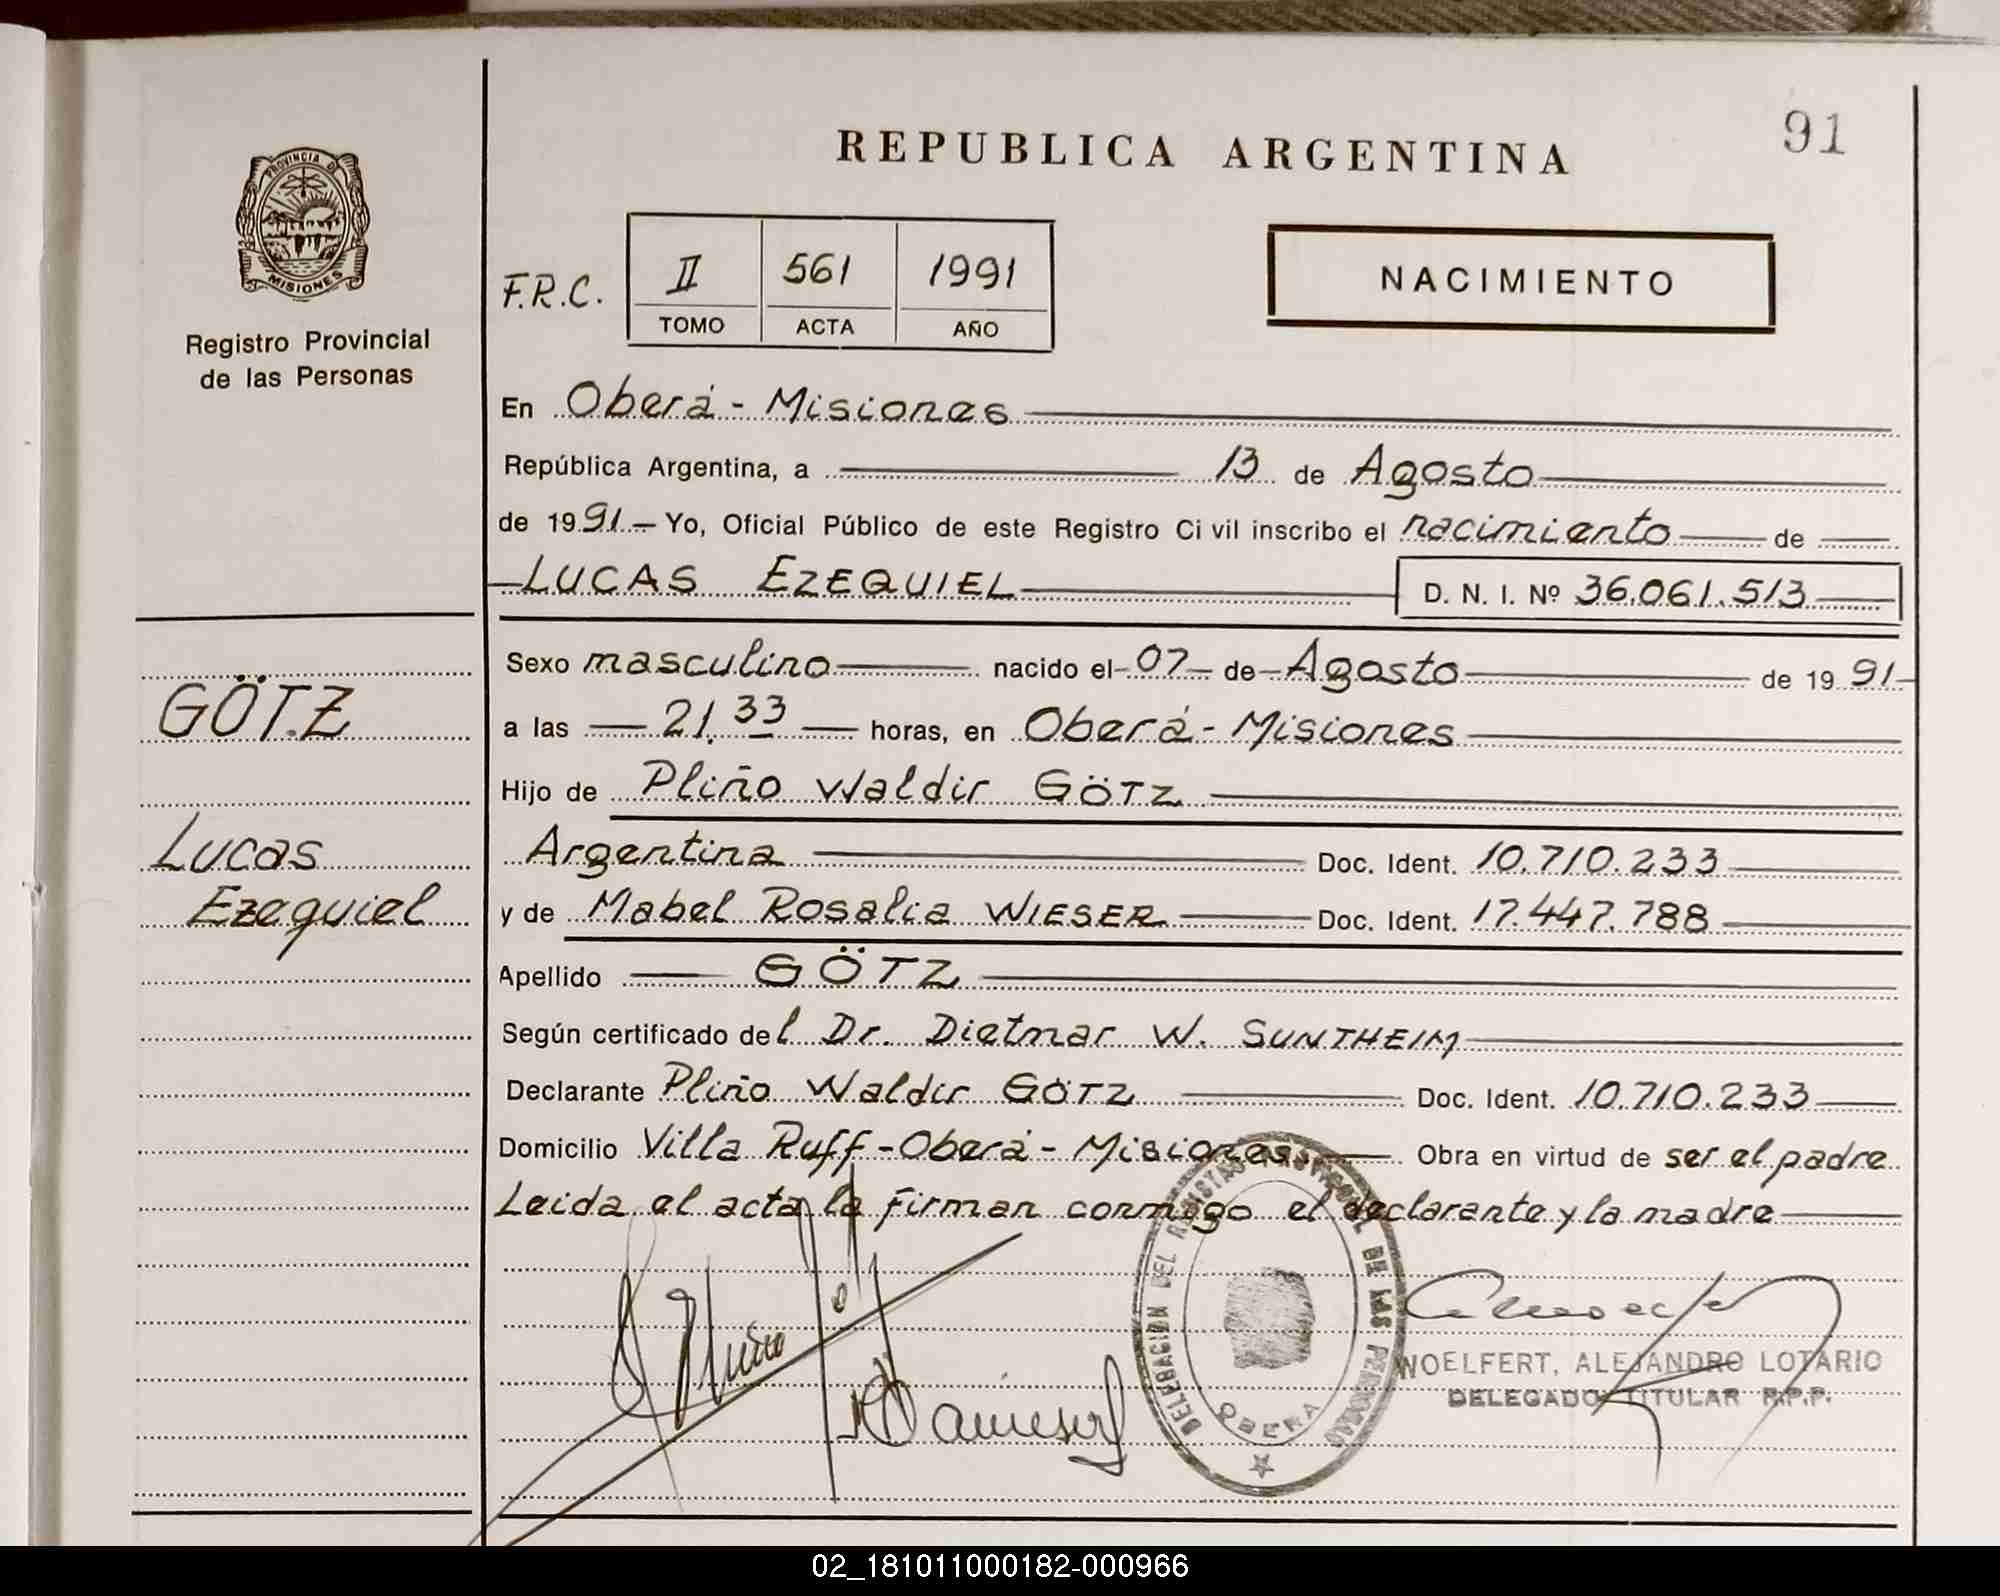 91
REPUBLICA ARGENTINA
PROVINCIA DE
MISIONES
Registro Provincial
de las Personas
F.R.C.
II 561 1991
TOMO ACTA AÑO
NACIMIENTO
En Oberá - Misiones
República Argentina, a 13 de Agosto
de 1991.- Yo, Oficial Público de este Registro Ci vil inscribo el nacimiento de
LUCAS EZEQUIEL D. N. I. Nº 36.061.513
GÖTZ
Lucas
Ezequiel
Sexo masculino nacido el 07 de Agosto de 1991
a las 21.33 horas, en Oberá - Misiones
Hijo de Pliño Waldir GÖTZ
Argentina Doc. Ident. 10.710.233
y de Mabel Rosalia WIESER Doc. Ident. 17.447.788
Apellido GÖTZ
Según certificado del Dr. Dietmar W. SUNTHEIM
Declarante Pliño Waldir GÖTZ Doc. Ident. 10.710.233
Domicilio Villa Ruff - Oberá - Misiones. Obra en virtud de ser el padre
Leida el acta la firman conmigo el declarante y la madre
DELEGACION DEL REGISTRO PROVINCIAL DE LAS PERSONAS
OBERA
WOELFERT, ALEJANDRO LOTARIO
DELEGADO TITULAR R.P.P.
02_181011000182-000966